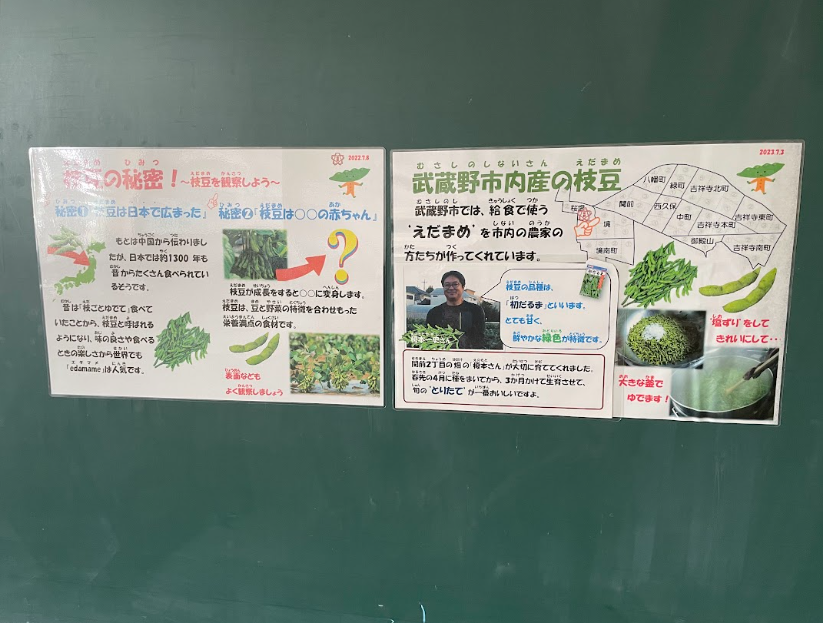 枝豆の秘密！～枝豆を観察しよう～
2022.7.8
秘密①「枝豆は日本で広まった」
もとは中国から伝わりまし
たが、日本では約1300年も
昔からたくさん食べられてい
るそうです。
昔は「枝ごとゆでて」食べて
いたことから、枝豆と呼ばれる
ようになり、味の良さや食べる
ときの楽しさから世界でも
「edamame」は人気です。
秘密②「枝豆は○○の赤ちゃん」
?
枝豆が成長をすると○○に変身します。
枝豆は、豆と野菜の特徴を合わせもった
栄養満点の食材です。
表面なども
よく観察しましょう
武蔵野市内産の枝豆
2023.7.3
武蔵野市では、給食で使う
“えだまめ”を市内の農家の
方たちが作ってくれています。
八幡町
緑町
吉祥寺北町
関前
西久保
吉祥寺東町
中町
吉祥寺本町
境
御殿山
吉祥寺南町
境南町
枝豆の品種は、
「初だるま」といいます。
とても甘く、
鮮やかな緑色が特徴です。
関前2丁目の畑の「榎本さん」が大切に育ててくれました。
春先の4月に種をまいてから、3か月かけて生育させて、
旬の“とりたて”が一番おいしいですよ。
“塩ずり”をして
きれいにして・・・
大きな釜で
ゆでます！